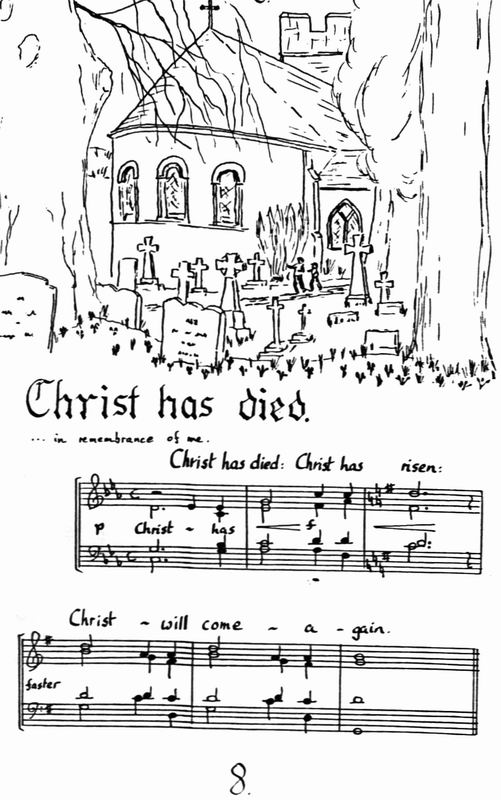 Christ has died.
... in remembrance of me.
Christ has died: Christ has risen:
p Christ ~ has f
Christ ~ will come ~ a - gain.
faster
8.